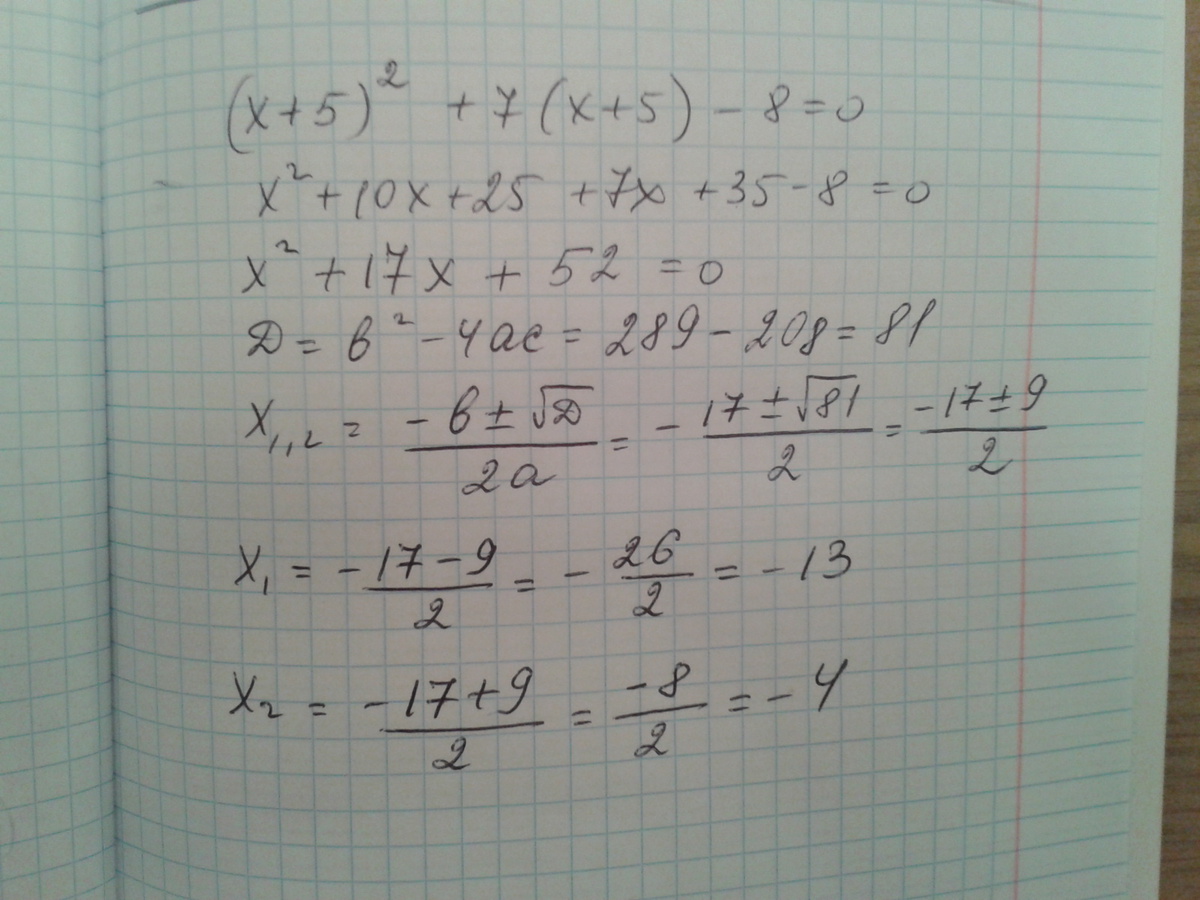 (x+5)² + 7(x+5) - 8 = 0
x² + 10x + 25 + 7x + 35 - 8 = 0
x² + 17x + 52 = 0
Д = в² - 4ас = 289 - 208 = 81
x₁,₂ = (-в ± √Д)/(2а) = -(17 ± √81)/2 = (-17 ± 9)/2
x₁ = (-17 - 9)/2 = -26/2 = -13
x₂ = (-17 + 9)/2 = (-8)/2 = -4